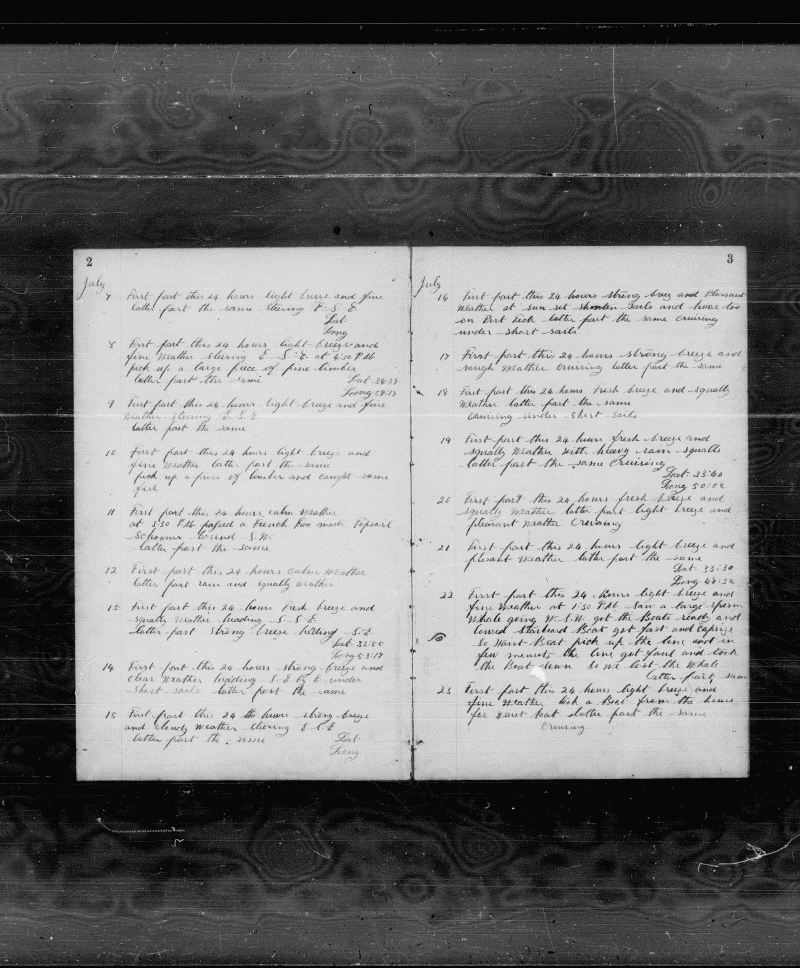 2
July
7 First part this 24 hours light breeze and fine
latter part the same steering E. S. E
Lat
Long
8 First part this 24 hours light breeze and
fine Weather stering E S. E at 4:30 P.M.
pick up a large piece of pine timber
latter part the same Lat 34:37
Long 59:17
9 First part this 24 hours light breeze and fine
Weather stering E S E
latter part the same
10 First part this 24 hours light breeze and
fine Weather latter part the same
pick up a piece of timber and caught some
fish
11 First part this 24 hours calm Weather
at 5:30 P.M. passed a French two masts Topsail
Schooner bound S.W.
latter part the same
12 First part this 24 hours calm Weather
latter part rain and squally Weather
13 First part this 24 hours fresh breeze and
squally Weather heading S. S. E
latter part strong breeze heding S. E.
Lat 32:55
Long 53:17
14 First part this 24 hours strong breeze and
clear Weather heading S. E by E under
short sails latter part the same
15 First part this 24 hours strong breeze
and Weather stering E S. E
latter part the same Lat
Long
3
July
16 First part this 24 hours strong and Plesant
Weather at sun set Sails and hove too
on Port tack latter part the same Cruiring
under short sails
17 First part this 24 hours strong breeze and
rough Weather cruiring latter part the same
18 First part this 24 hours Fresh breeze and squally
Weather latter part the same
Cruiring under short sails
19 First part this 24 hours fresh breeze and
squally Weather with heavy rain squalls
latter part the same Cruiring
Lat 33:40
Long 50:02
20 First part this 24 hours fresh breeze and
squally Weather latter part light breeze and
pleasant Weather Cruiring
21 First part this 24 hours light breeze and
plesant Weather latter part the same
Lat 33:30
Long 48:32
22 First part this 24 hours light breeze and
fine Weather at 1:30 P.M. saw a large sperm
Whale going W. S.W. got the Boats ready and
lowed Starboard Boat got fast and
so Waist Boat pick up the line and in
few the line got foul and took
the Boat down so we lost the Whale
latter part same
23 First part this 24 hours light breeze and
fine Weather took a Boat from the house
for Waist boat latter part the same
Cruiring